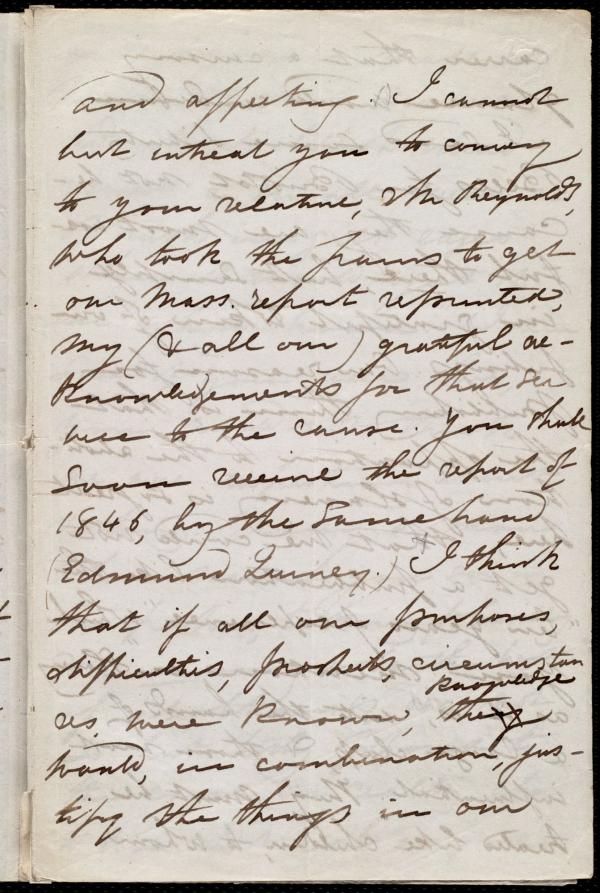 and affecting. I cannot
but intreat you to convey
to your relative, Mr Reynolds,
who took the pains to get
our Mass. report reprinted,
my (& all our) grateful ac-
knowledgements for that ser
vice to the cause. You shall
soon receive the report of
1846, by the same hand
(Edmund Quincy.) I think
that if all our purposes,
difficulties, prospects, circumstan
knowledge
ces were known, the
would, in combination, jus-
tify the things in our